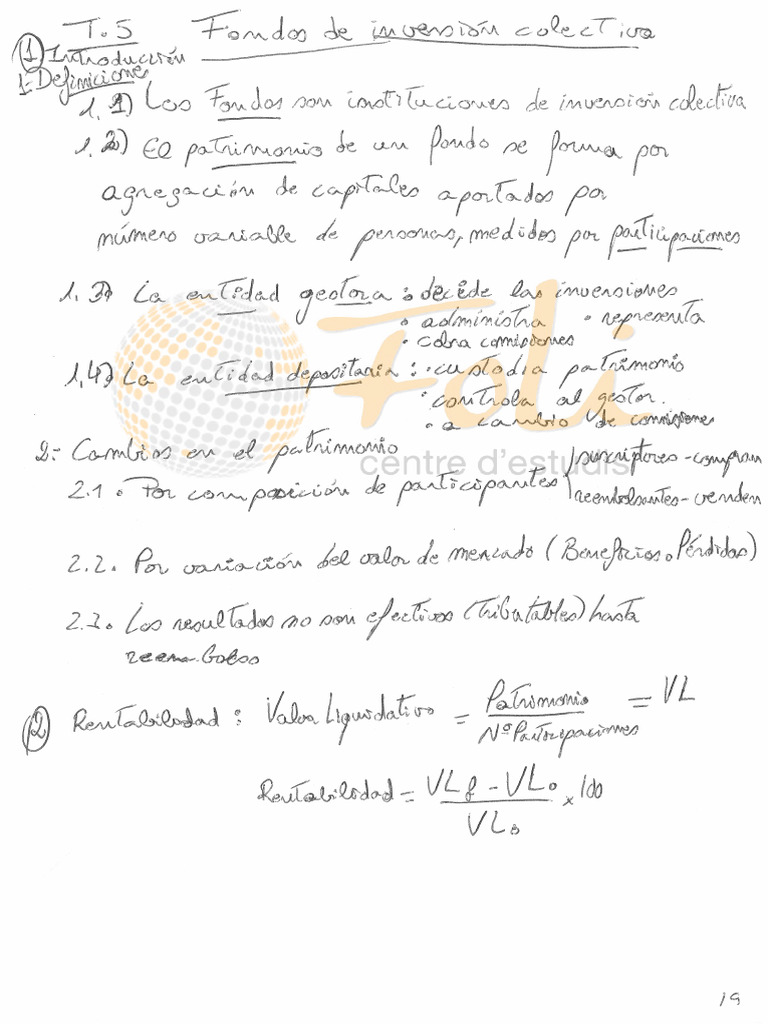 T.5 Fondos de inversión colectiva
① Introducción
1- Definiciones
1.1) Los Fondos son instituciones de inversión colectiva
1.2) El patrimonio de un fondo se forma por
agregación de capitales aportados por
número variable de personas, medidos por participaciones
1.3) La entidad gestora : • decide las inversiones
• administra • representa
• cobra comisiones
1.4) La entidad depositaria : • custodia patrimonio
• controla al gestor.
• a cambio de comisiones
2- Cambios en el patrimonio
2.1. Por composición de participantes suscriptores - compran
reembolsantes - venden
2.2. Por variación del valor de mercado (Beneficios o Pérdidas)
2.3. Los resultados no son efectivos (tributables) hasta
reembolso
② Rentabilidad : Valor Liquidativo = Patrimonio / Nº Participaciones = VL
Rentabilidad = VLf - VL0 / VL0 x 100
Foli
centre d'estudis
19